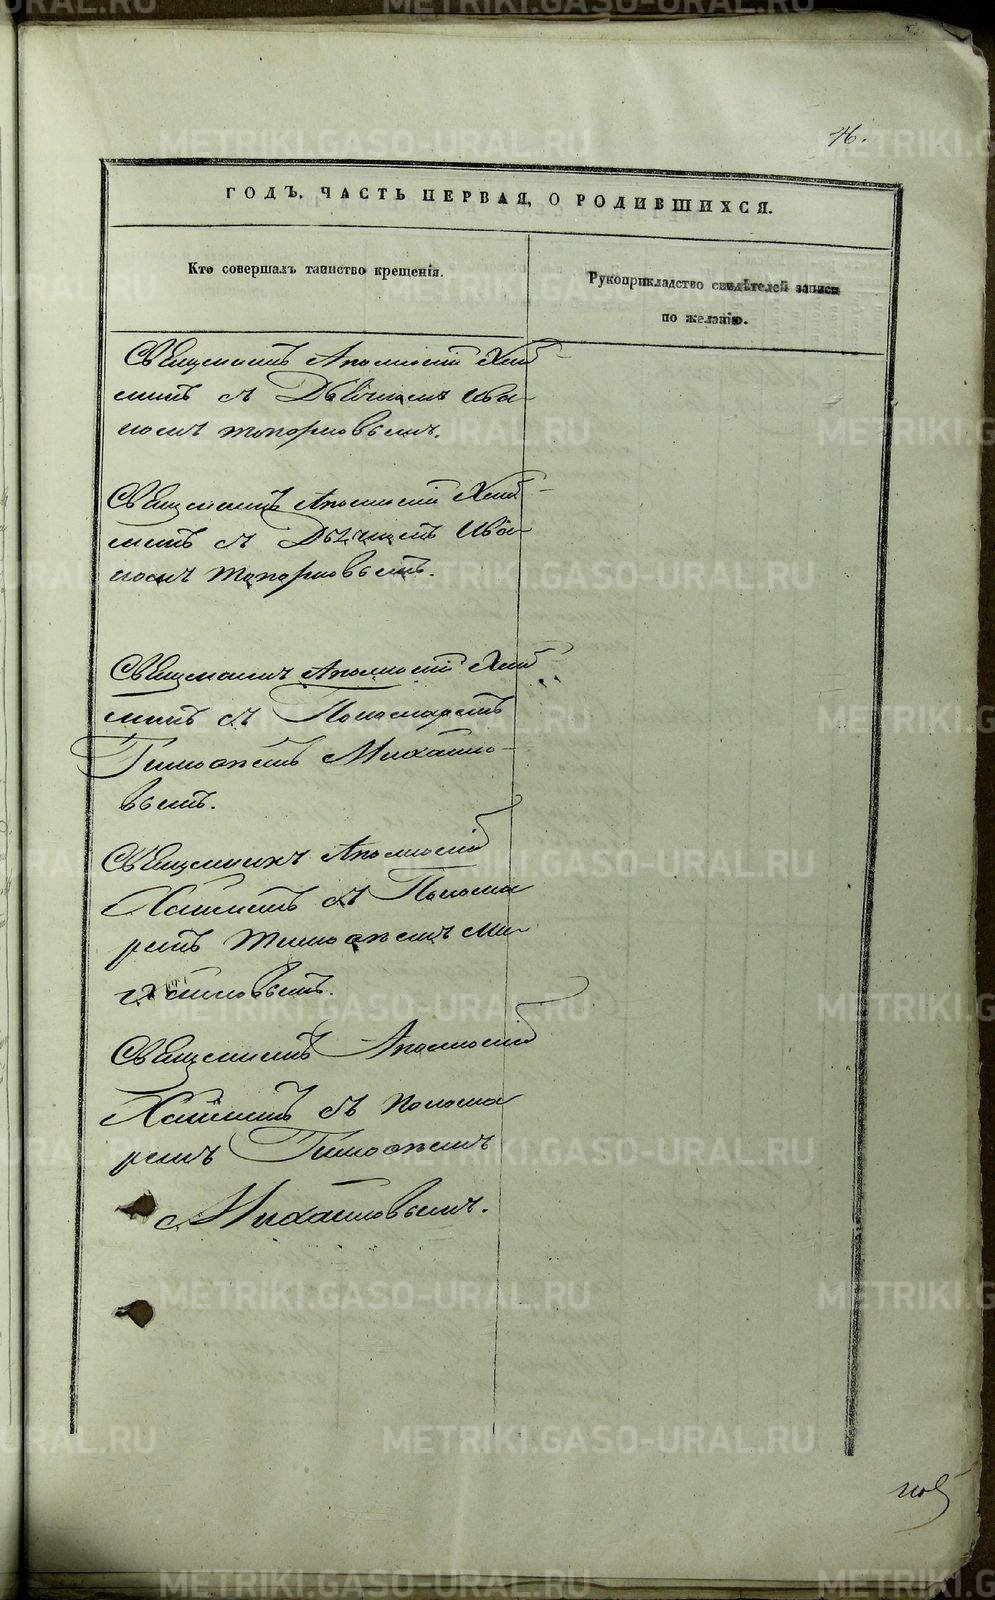 76.
ГОДЪ, ЧАСТЬ ПЕРВАЯ, О РОДИВШИХСЯ.
Кто совершалъ таинство крещенія.
Рукоприкладство свидѣтелей записи
по желанію.
Священникъ Аполлосій
съ Дьячкомъ Ива-
номъ Топорковымъ.
Священникъ Аполлосій
съ Дьячкомъ Ива-
номъ Топорковымъ.
Священникъ Аполлосій
съ Пономаремъ
Тимофеемъ Михайло-
вымъ.
Священникъ Аполлосій
съ Понома
ремъ Тимофеемъ Ми-
хайловымъ.
Священникъ Аполлосій
съ понома
ремъ Тимофеемъ
Михайловымъ.
METRIKI.GASO-URAL.RU